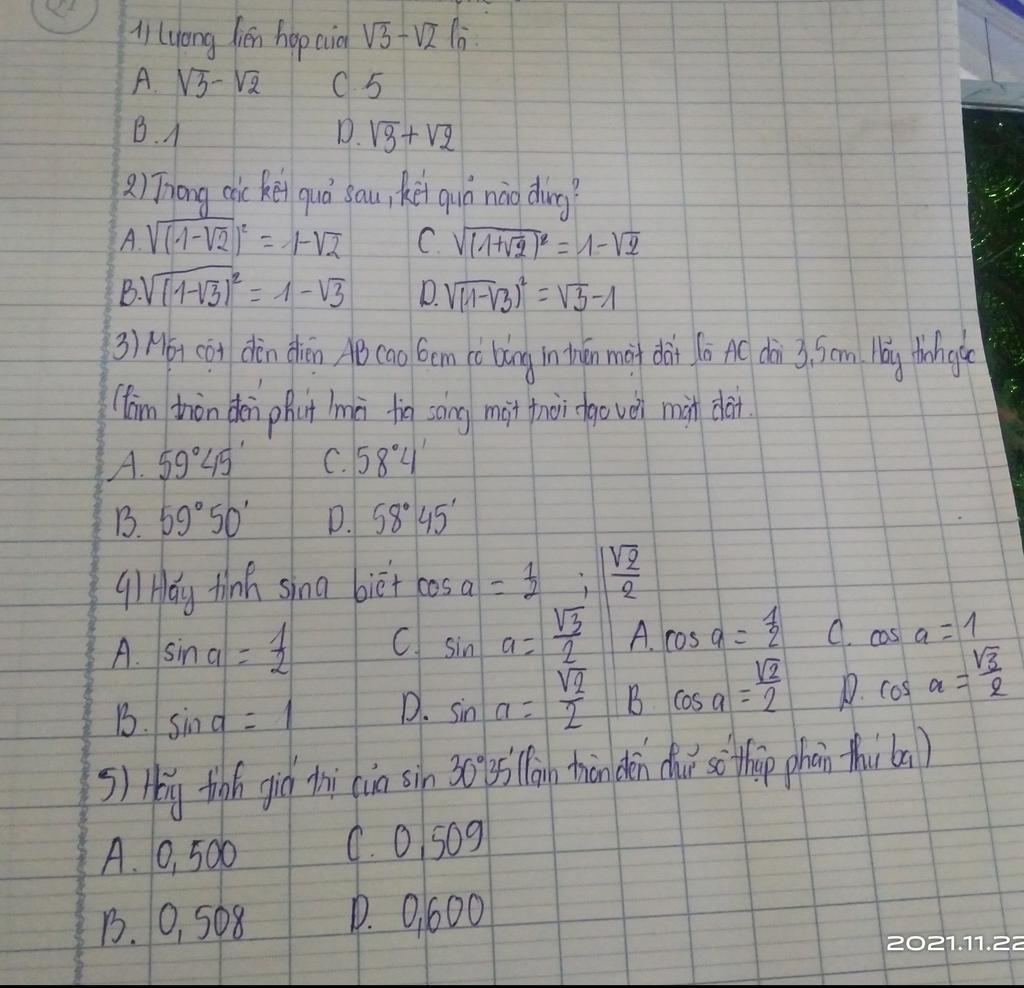 1) Lượng liên hợp của √3 - √2 là:
A. √3 - √2 C. 5
B. 1 D. √3 + √2
2) Trong các kết quả sau, kết quả nào đúng?
A. √(1-√2)² = 1-√2 C. √(1+√2)² = 1-√2
B. √(1-√3)² = 1-√3 D. √(1-√3)² = √3-1
3) Một cột đèn điện AB cao 6cm có bóng in trên mặt đất là AC dài 3,5cm. Hãy tính góc
(làm tròn đến phút) mà tia sáng mặt trời tạo với mặt đất.
A. 59°45' C. 58°4'
B. 59°50' D. 58°45'
4) Hãy tính sina biết cos a = 1/2 ; √2/2
A. sin a = 1/2 C. sin a = √3/2 A. cos a = 1/2 C. cos a = 1
B. sin a = 1 D. sin a = √2/2 B. cos a = √2/2 D. cos a = √3/2
5) Hãy tính giá trị của sin 30°35' (làm tròn đến chữ số thập phân thứ ba)
A. 0,500 C. 0,509
B. 0,508 D. 0,600
2021.11.22